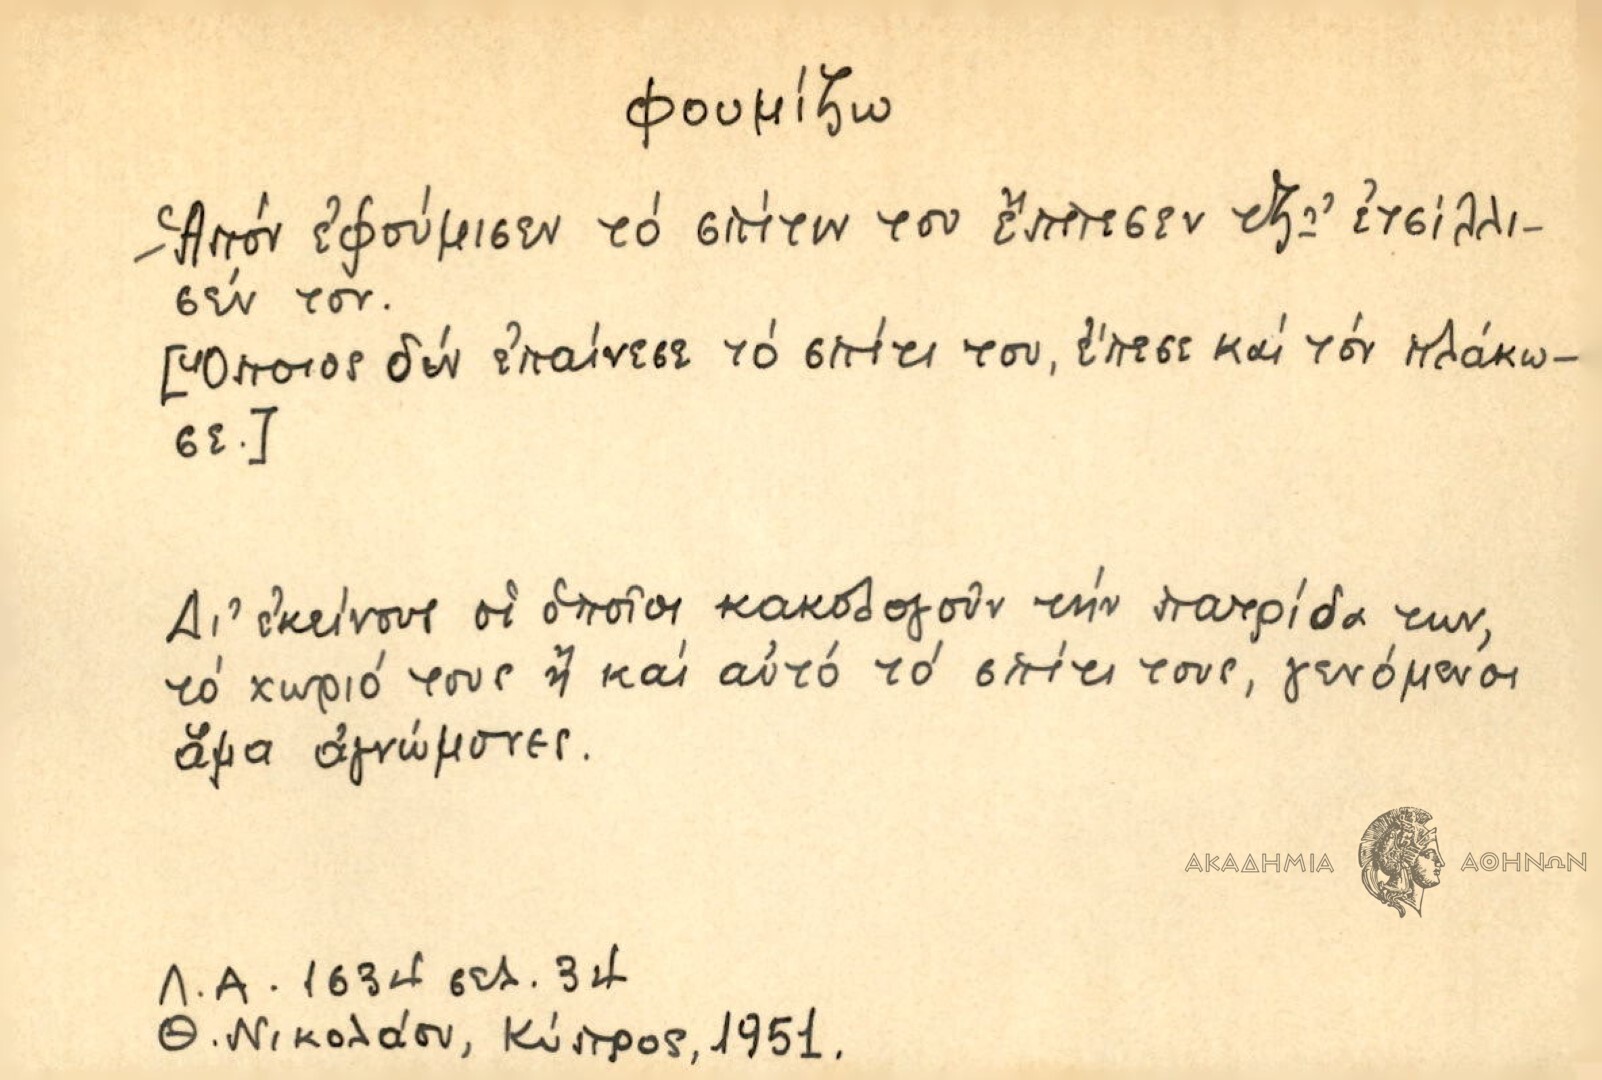 φουμίζω
Ἁπόν ἐφούμισεν τό σπίτιν του ἔππεσεν τζ̌ι' ἐτσίλλι-
σέν τον.
[Ὅποιος δέν ἐπαίνεσε τό σπίτι του, ἔπεσε καί τόν πλάκω-
σε.]
Δι' ἐκείνους οἱ ὁποῖοι κακολογοῦν τήν πατρίδα των,
τό χωριό τους ἤ καί αὐτό τό σπίτι τους, γενόμενοι
ἅμα ἀγνώμονες.
ΑΚΑΔΗΜΙΑ ΑΘΗΝΩΝ
Λ.Α. 1634 σελ. 34
Θ. Νικολάου, Κύπρος, 1951.